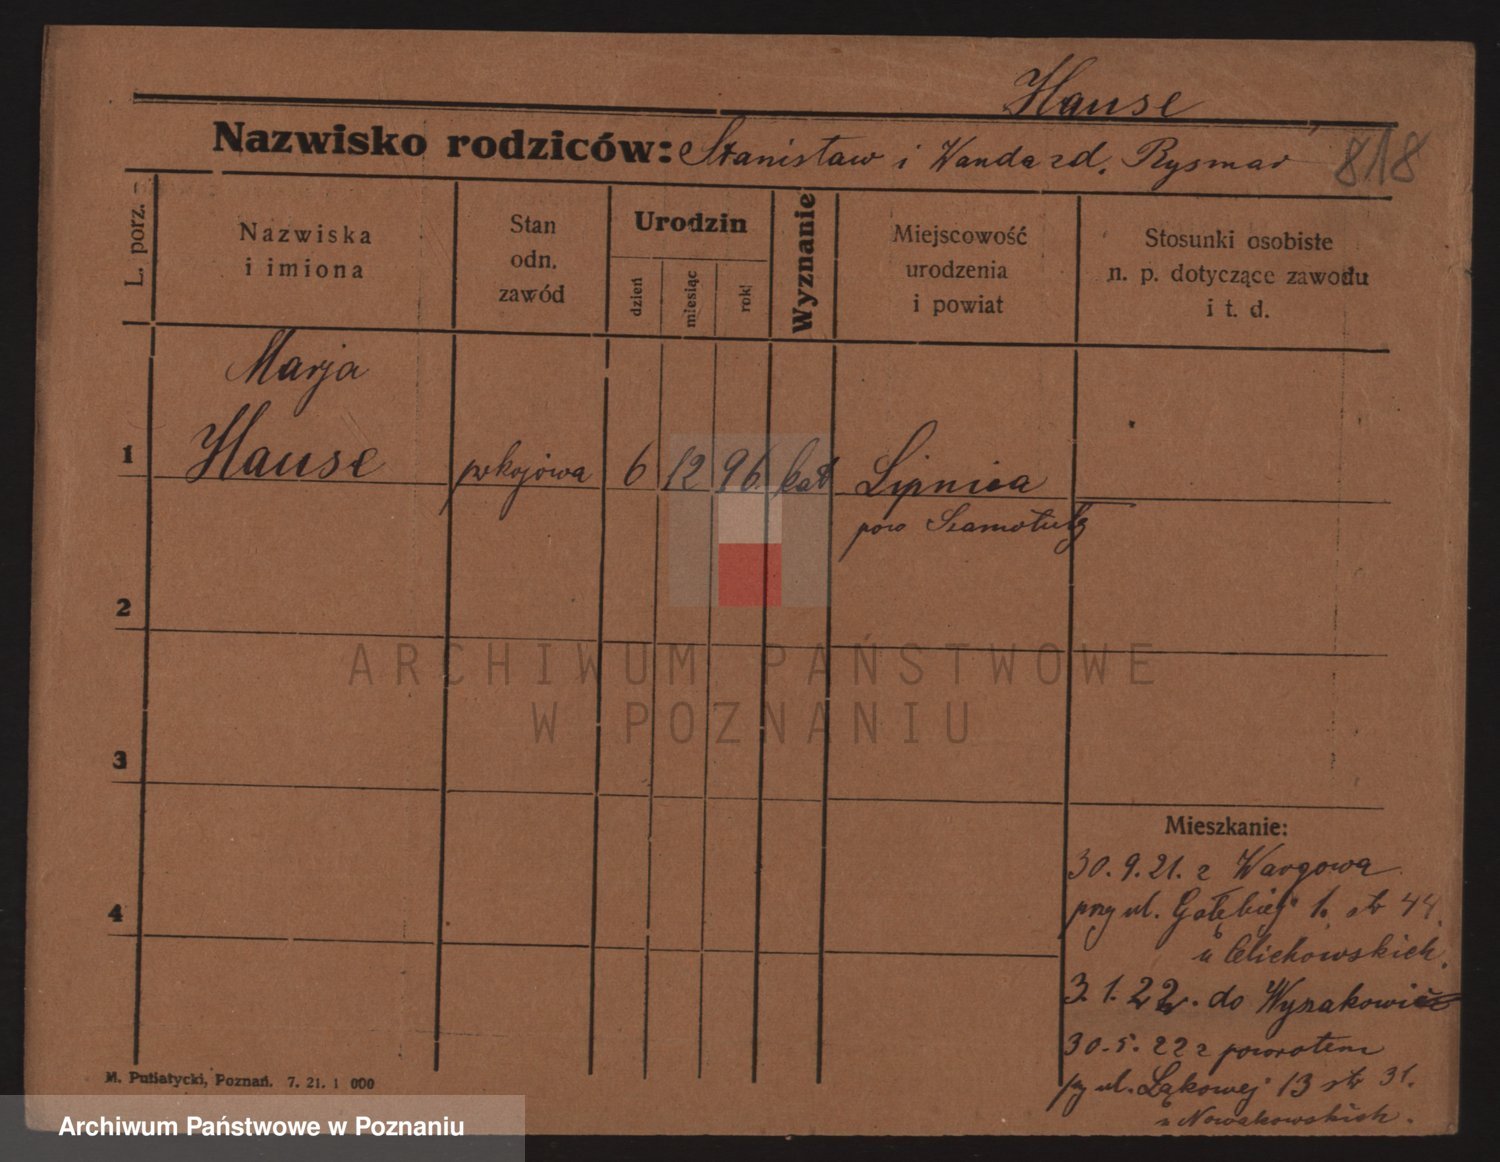 Hause
Nazwisko rodziców: Stanisław i Wanda zd. Rysmar
818
L. porz.
Nazwiska
i imiona
Stan
odn.
zawód
Urodzin
dzień
miesiąc
rok
Wyznanie
Miejscowość
urodzenia
i powiat
Stosunki osobiste
n. p. dotyczące zawodu
i t. d.
Marja
1 Hause pokojówa 6 12 96 kat Lipnica
pow Szamotuły
2
3
4
Mieszkanie:
30.9.21. z Wargowa
przy ul. Gołębiej 1. str 44.
u Cichowskich.
3.1.22. do
30.5.22 z powrotem
py ul. Łąkowej 13 str 31.
u Nowakowskich.
M. Putiatycki, Poznań. 7. 21. 1 000
ARCHIWUM PAŃSTWOWE
W POZNANIU
Archiwum Państwowe w Poznaniu